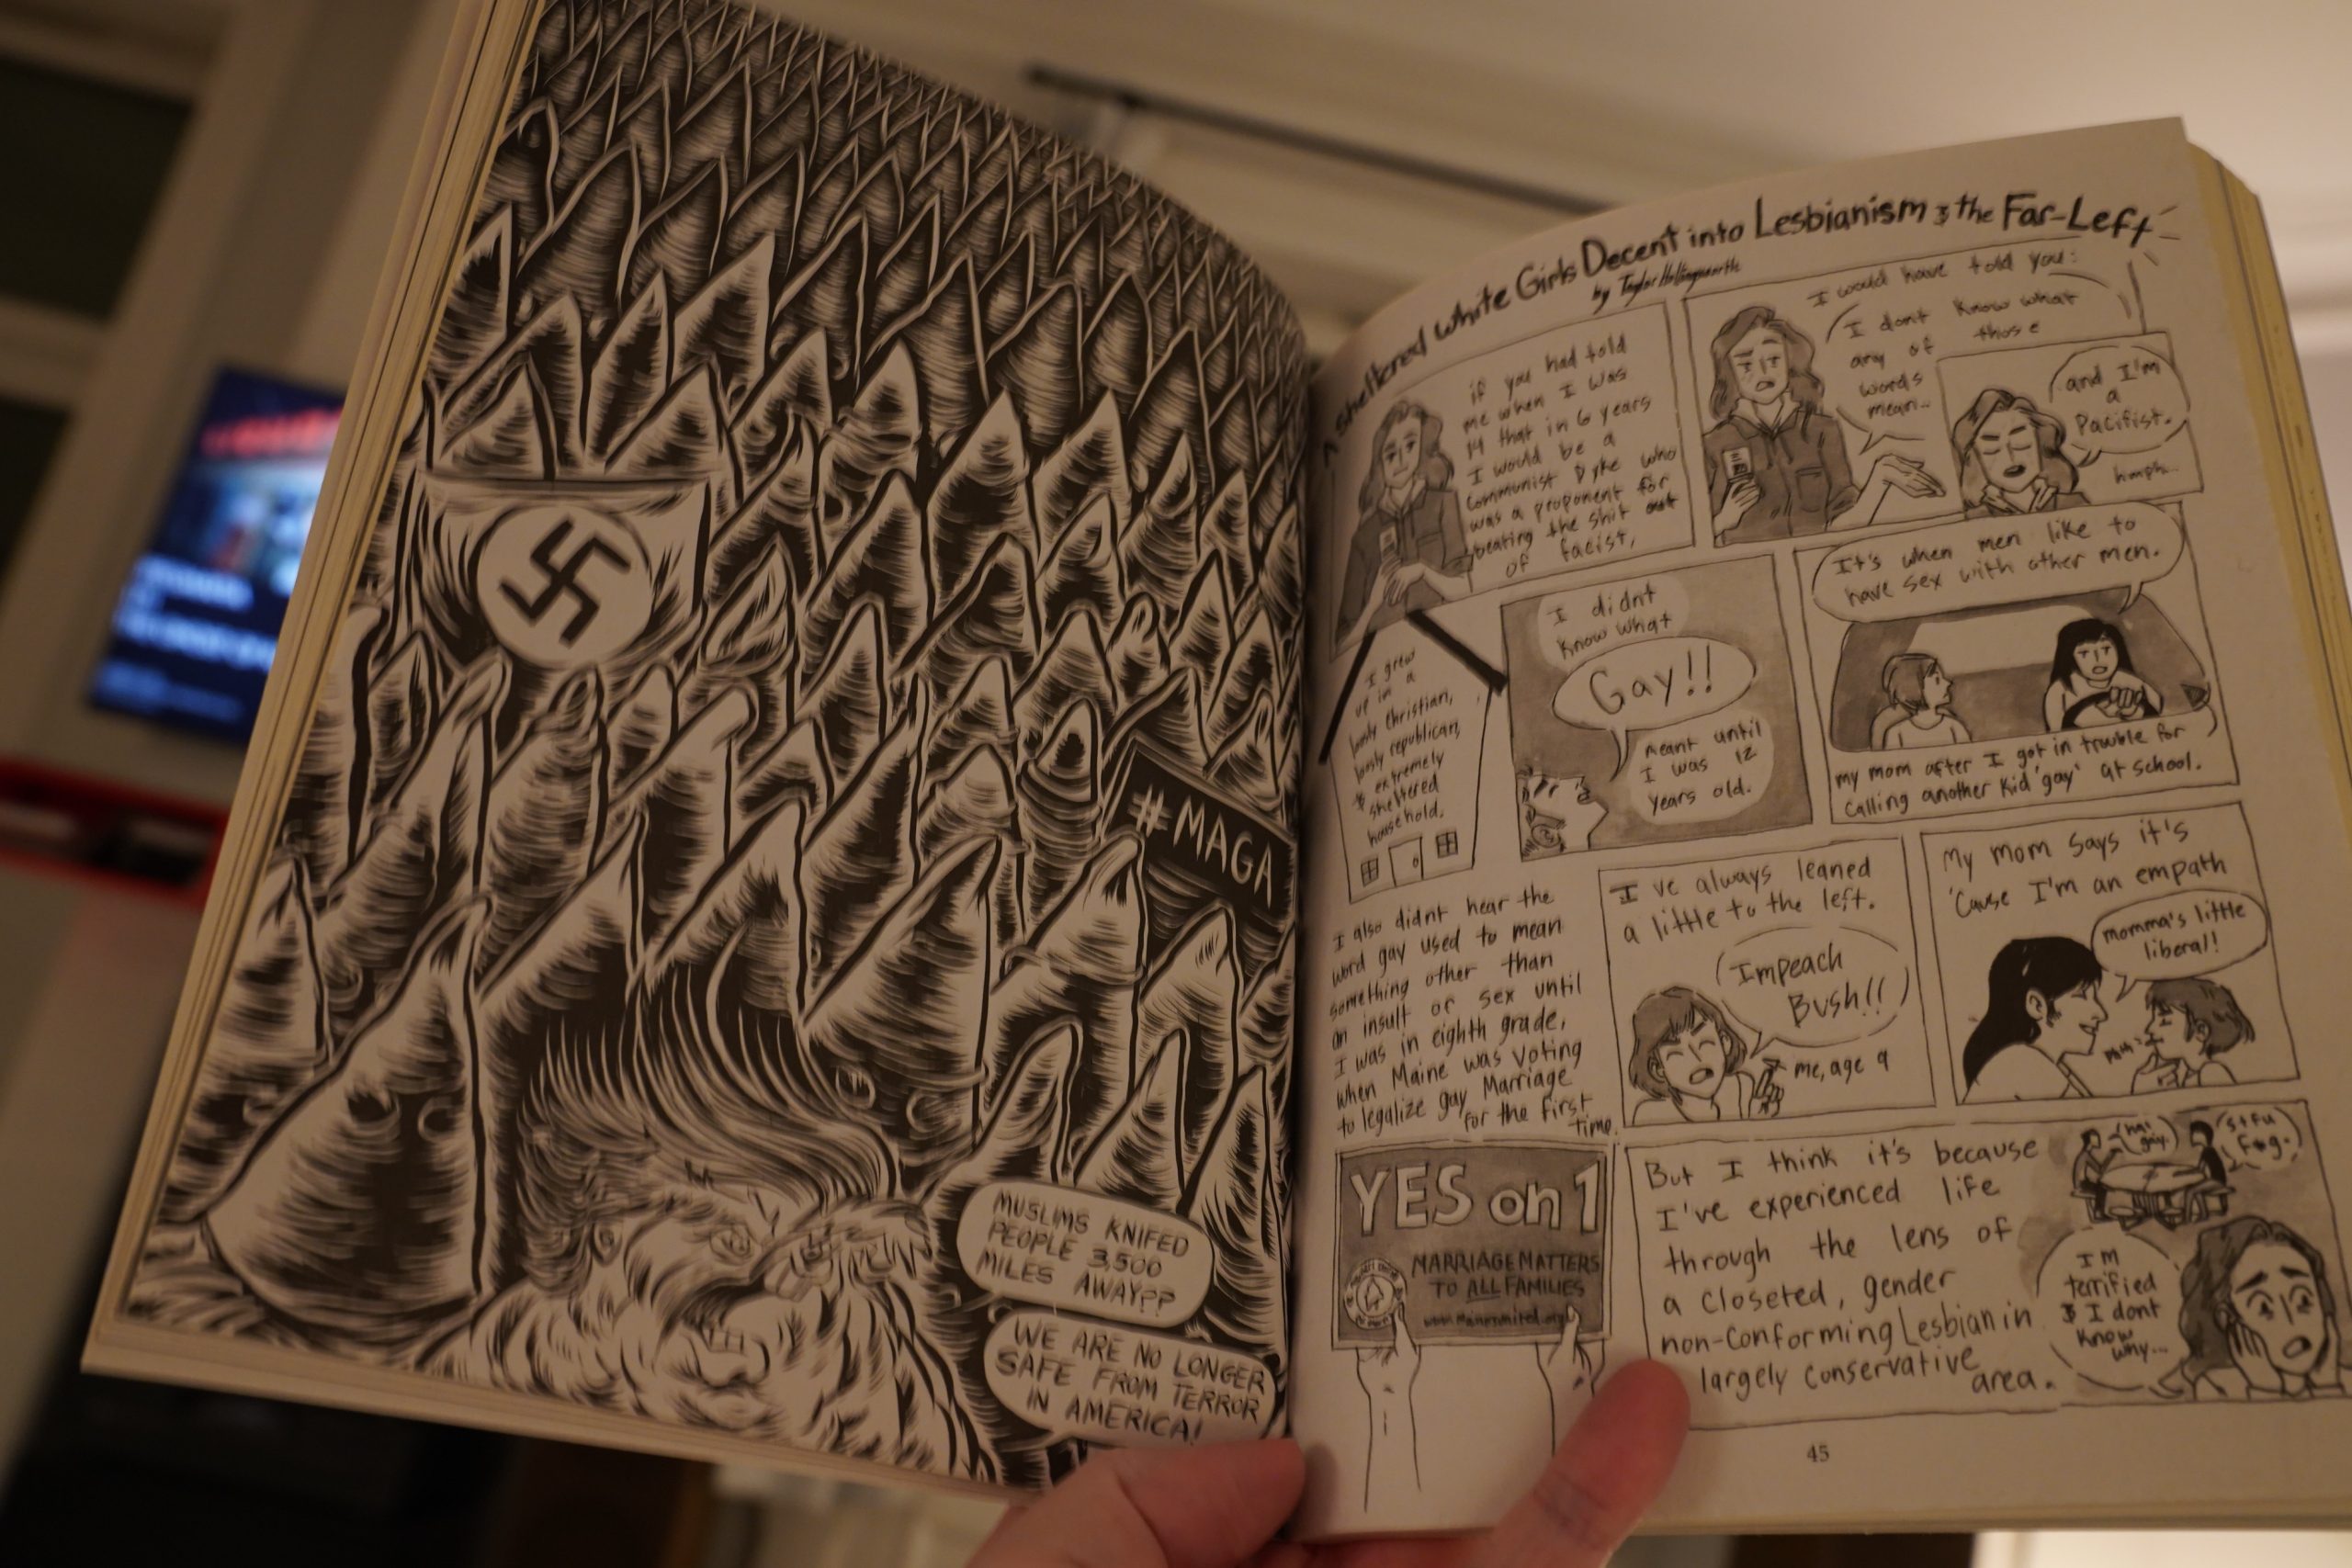 #MAGA
MUSLIMS KNIFED
PEOPLE 3,500
MILES AWAY??
WE ARE NO LONGER
SAFE FROM TERROR
IN AMERICA!
A sheltered White Girls Decent into Lesbianism & the Far-Left
by Taylor Hollingsworth
if you had told
me when I was
14 that in 6 years
I would be a
Communist Dyke who
was a proponent for
beating the shit out
of facist,
I would have told you:
I dont know what
any of those
words
mean...
and I'm
a
Pacifist.
hmph...
I grew
up in a
lously Christian,
lously republican,
& extremely
sheltered
household.
I didnt
know what
Gay!!
meant until
I was 12
years old.
It's when men like to
have sex with other men.
my mom after I got in trouble for
calling another kid 'gay' at school.
I also didnt hear the
word gay used to mean
something other than
an insult or sex until
I was in eighth grade,
when Maine was voting
to legalize gay Marriage
for the first
time.
I've always leaned
a little to the left.
Impeach
Bush!!
me, age 9
My mom says it's
'Cause I'm an empath
momma's little
liberal!
YES on 1
MARRIAGE MATTERS
TO ALL FAMILIES
But I think it's because
I've experienced life
through the lens of
a closeted, gender
non-conforming Lesbian in
largely conservative
area.
ha!
gay.
stfu
f*g.
I'm
terrified
& I dont
know
why...
45